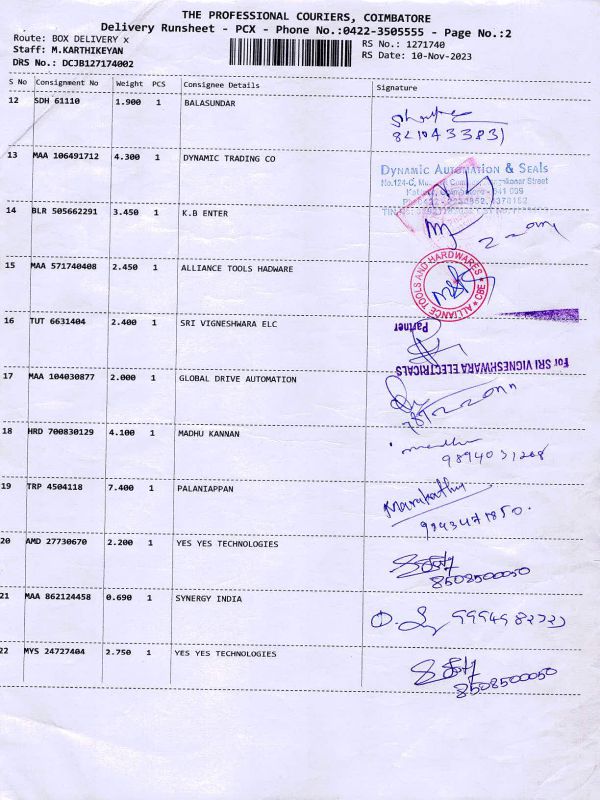 THE PROFESSIONAL COURIERS, COIMBATORE
Delivery Runsheet - PCX - Phone No.:0422-3505555 - Page No.:2
Route: BOX DELIVERY x
RS No.: 1271740
Staff: M.KARTHIKEYAN
RS Date: 10-Nov-2023
DRS No.: DCJB127174002
S No Consignment No Weight PCS Consignee Details Signature
12 SDH 61110 1.900 1 BALASUNDAR
8210433831
13 MAA 106491712 4.300 1 DYNAMIC TRADING CO
DYNAMIC AUTOMATION & SEALS
14 BLR 505662291 3.450 1 K.B ENTER
15 MAA 571740408 2.450 1 ALLIANCE TOOLS HADWARE
ALLIANCE TOOLS AND HARDWARES CBE
16 TUT 6631404 2.400 1 SRI VIGNESHWARA ELC
Partner
For SRI VIGNESHWARA ELECTRICALS
17 MAA 104030877 2.000 1 GLOBAL DRIVE AUTOMATION
18 HRD 700830129 4.100 1 MADHU KANNAN
madhu
9894031268
19 TRP 4504118 7.400 1 PALANIAPPAN
Marakathu
9943471850.
20 AMD 27730670 2.200 1 YES YES TECHNOLOGIES
8508500050
21 MAA 862124458 0.690 1 SYNERGY INDIA
22 MYS 24727404 2.750 1 YES YES TECHNOLOGIES
8508500050